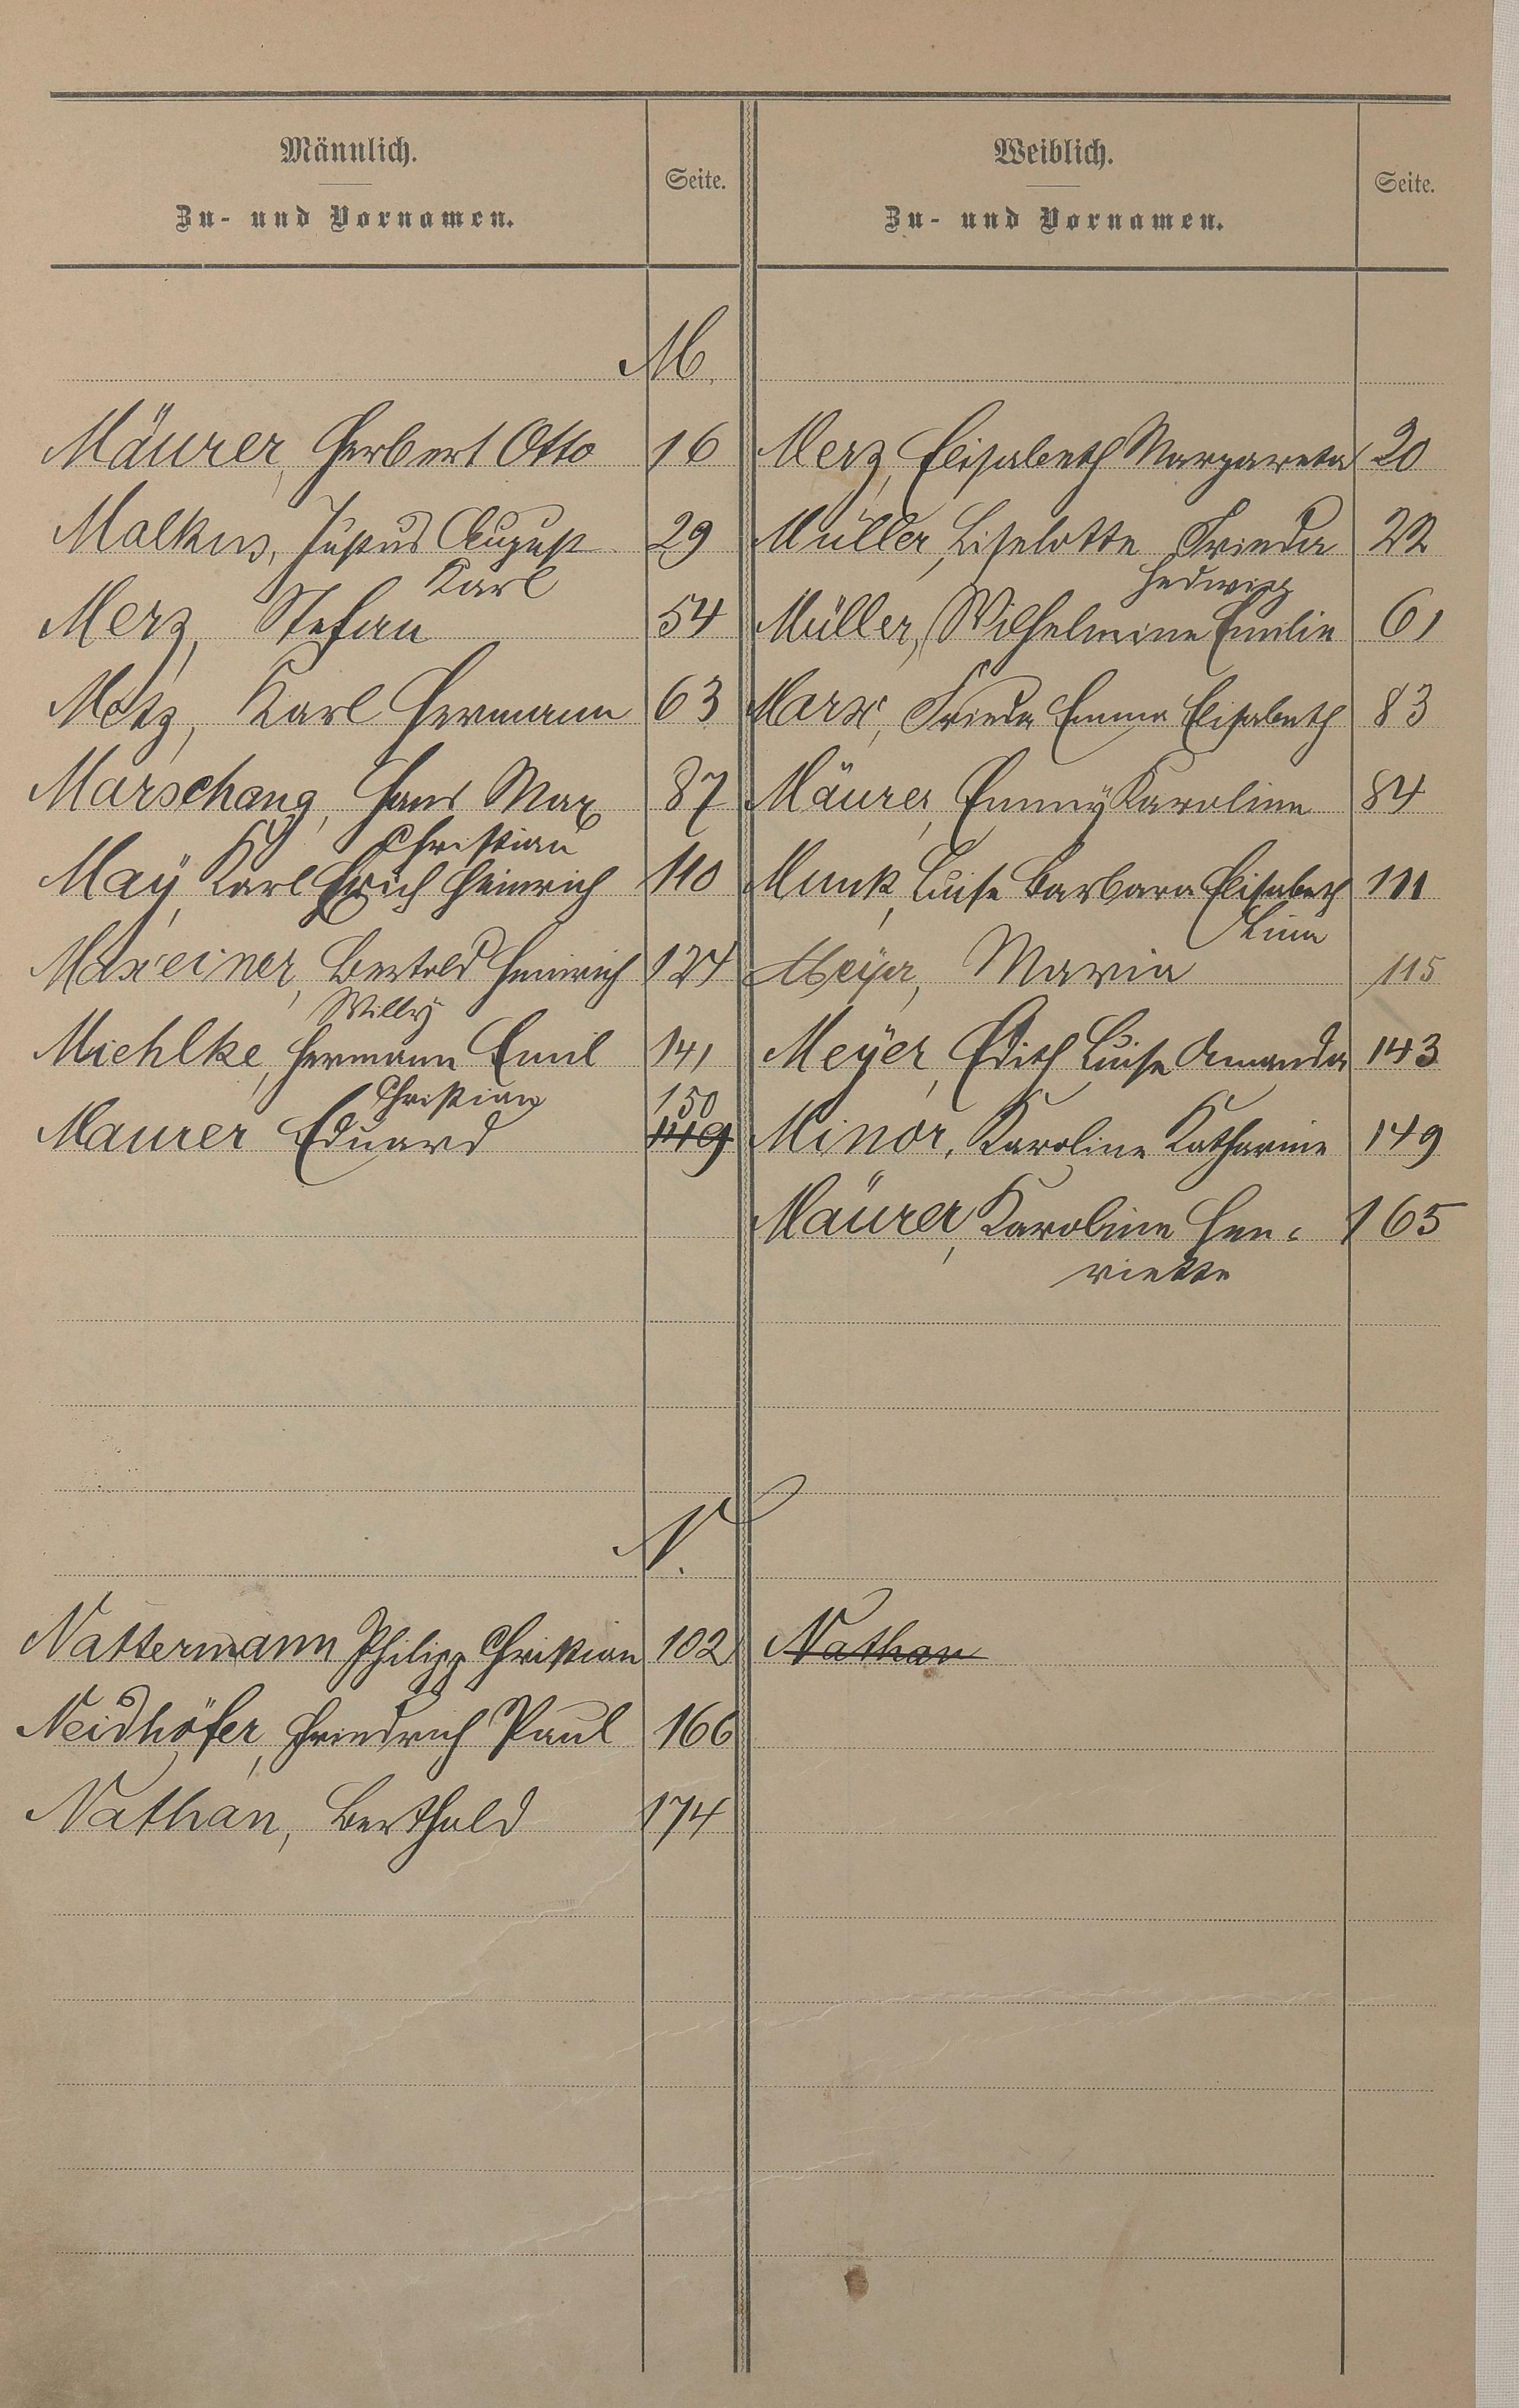 Männlich.
Zu- und Vornamen.
Seite.
Weiblich.
Zu- und Vornamen.
Seite.
M.
Mäurer, Herbert Otto 16
Malkus, Justus August 29
Karl
Merz, Stefan 54
Metz, Karl Hermann 63
Marschang, Hans Max 87
Christian
May, Karl Erich Heinrich 110
Maxeiner, Bertold Heinrich 124
Willy
Miehlke, Hermann Emil 141
Christian 150
Maurer Eduard 149
Merz, Elisabeth Margareta 20
Müller, Liselotte Frieda 22
Hedwig
Müller, Wilhelmine Emilie 61
Marx, Frieda Emma Elisabeth 83
Mäurer, Emmy Karoline 84
Munk, Luise Barbara Elisabeth 111
Lina
Meyer, Maria 115
Meyer, Edith Luise Amanda 143
Minor, Karoline Katharine 149
Mäurer, Karoline Hen- 165
riette
N.
Nattermann Philipp Christian 102
Neidhöfer, Friedrich Paul 166
Nathan, Berthold 174
Nathan